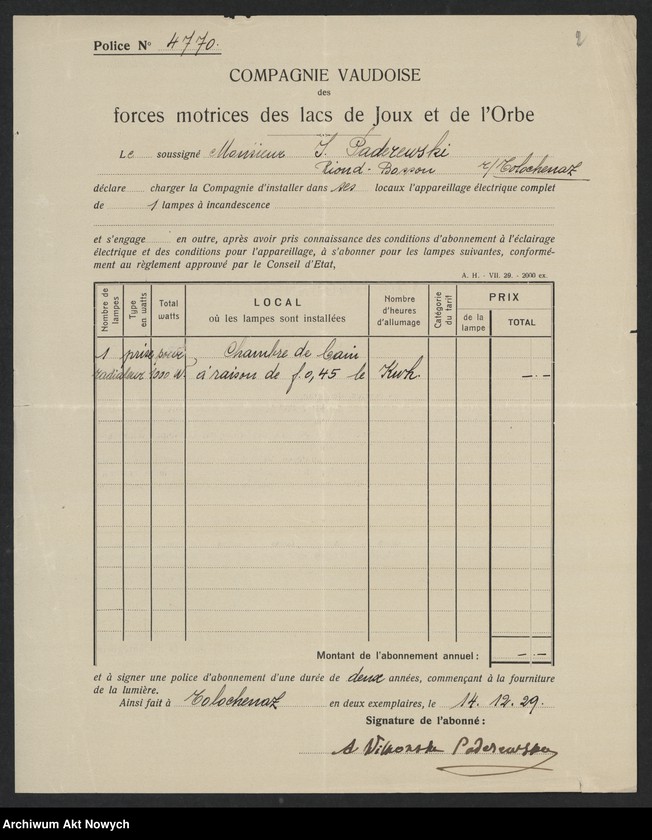 2
Police No 4770.
COMPAGNIE VAUDOISE
des
forces motrices des lacs de Joux et de l'Orbe
Le soussigné Monsieur I. Paderewski
Riond-Bosson r/Tolochenaz
déclare charger la Compagnie d'installer dans ses locaux l'appareillage électrique complet
de 1 lampes à incandescence
et s'engage en outre, après avoir pris connaissance des conditions d'abonnement à l'éclairage
électrique et des conditions pour l'appareillage, à s'abonner pour les lampes suivantes, conformé-
ment au règlement approuvé par le Conseil d'Etat,
A. H. - VII. 29. - 2000 ex.
Nombre de lampes
Type en watts
Total watts
LOCAL
où les lampes sont installées
Nombre d'heures d'allumage
Catégorie du tarif
PRIX
de la lampe
TOTAL
1 prise pour Chambre de bain
radiateur 1000 W. à raison de f. 0,45 le Kwh. —.—
Montant de l'abonnement annuel: —.—
et à signer une police d'abonnement d'une durée de deux années, commençant à la fourniture
de la lumière.
Ainsi fait à Tolochenaz en deux exemplaires, le 14. 12. 29.
Signature de l'abonné:
Paderewski
Archiwum Akt Nowych